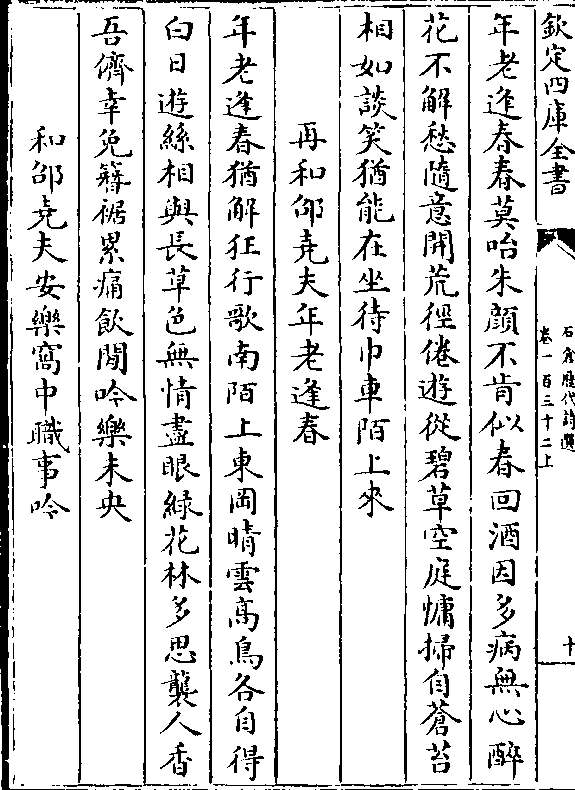 欽定四庫全書
石倉歷代詩選
卷一百三十二上
十
年老逢春春莫咍朱顔不肯似春回酒因多病無心醉
花不解愁隨意開荒徑倦遊從碧草空庭慵掃自蒼苔
相如談笑猶能在坐待巾車陌上來
再和邵堯夫年老逢春
年老逢春猶解狂行歌南陌上東岡晴雲髙鳥各自得
白日遊絲相與長草色無情盡眼綠花林多思襲人香
吾儕幸免簪裾累痛飲閒吟樂未央
和邵堯夫安樂窩中職事吟